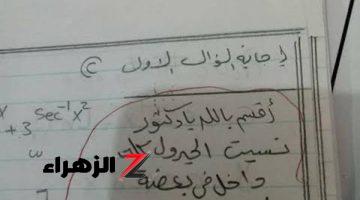 إجابة السؤال الاول c)
x
+3 sec⁻¹x²
أقسم بالله يا دكتور
نسيت الجدول كله
داخل في بعضه
الزهراء